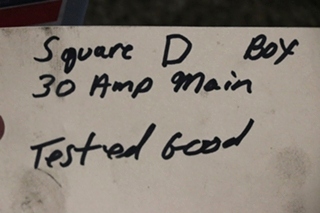 Square D Box
30 Amp Main
Tested Good